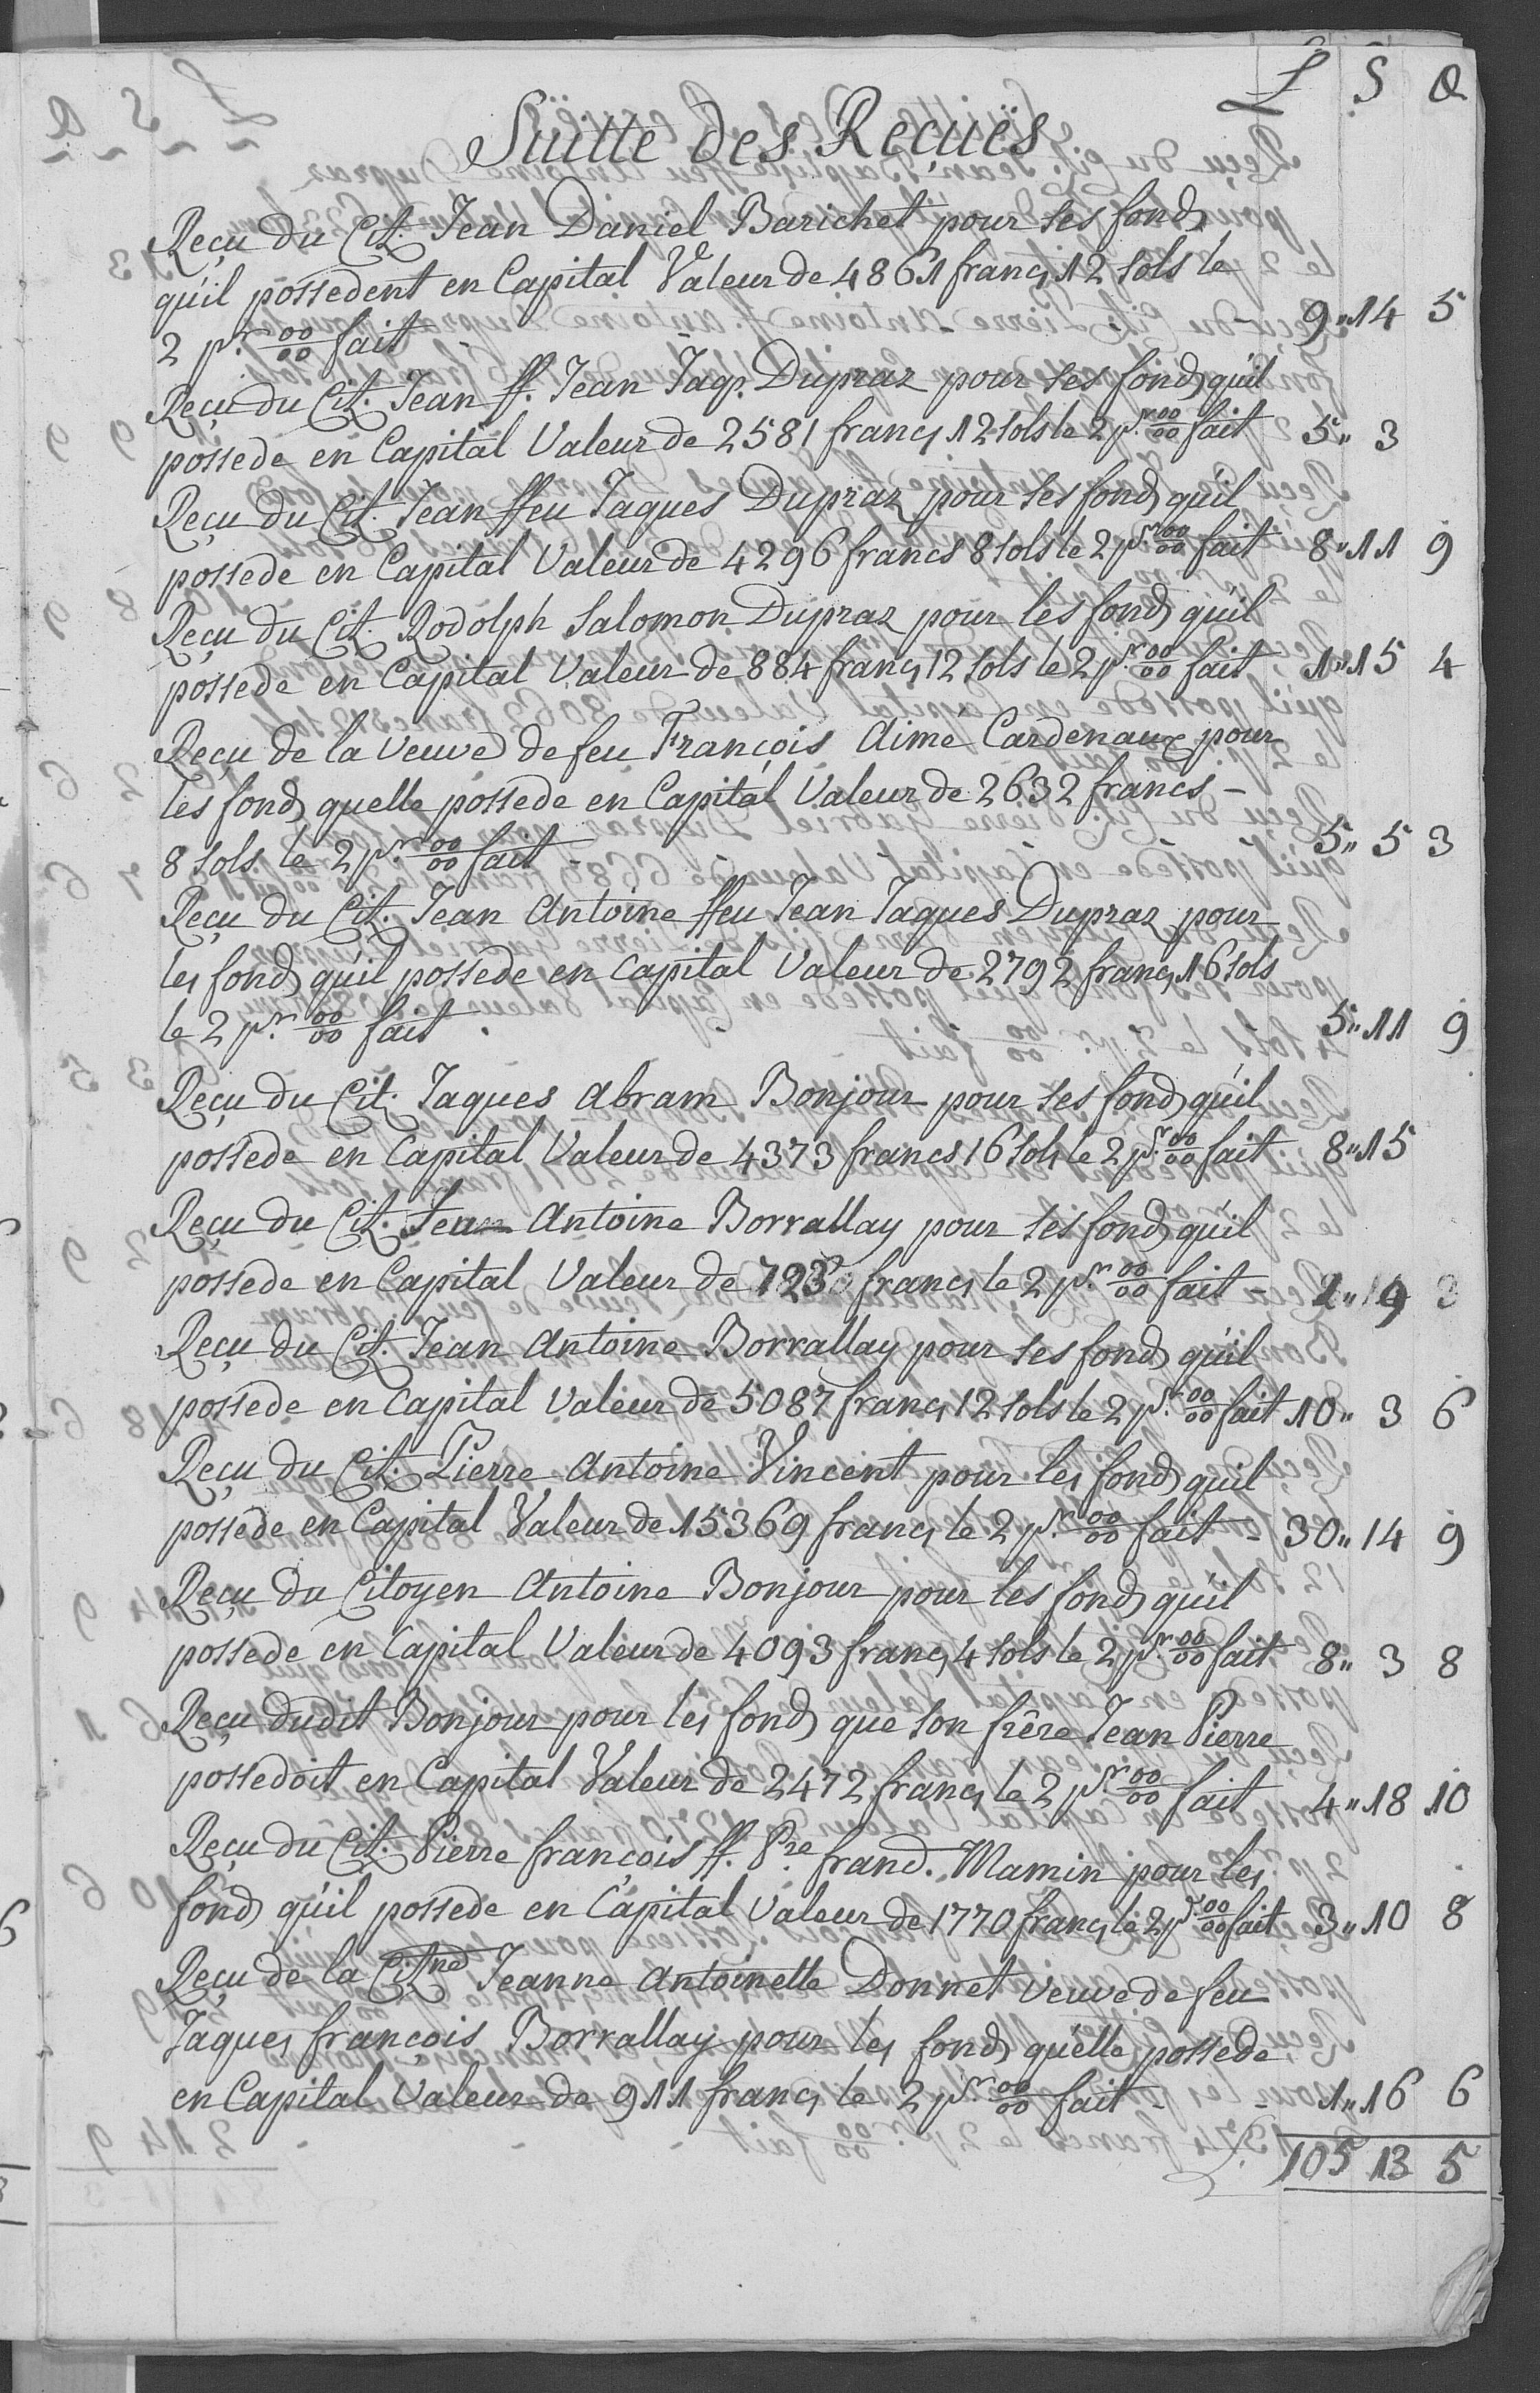 L S Q
Suitte des Reçuës
Reçu du Cit. Jean Daniel Barichet pour ses fonds
qu'il possedent en Capital Valeur de 4861 francs 12 sols le
2 pr. 00/00 fait - - 9,, 14 5
Reçu du Cit. Jean ff. Jean Jaqs. Dupraz pour ses fonds qu'il
possede en Capital Valeur de 2581 francs 12 sols le 2 pr. 00/00 fait 5,, 3
Reçu du Cit. Jean ffeu Jaques Dupraz pour ses fonds qu'il
possede en Capital Valeur de 4296 francs 8 sols le 2 pr. 00/00 fait 8,, 11 9
Reçu du Cit. Rodolph Salomon Dupraz pour les fonds qu'il
possede en Capital Valeur de 884 francs 12 sols le 2 pr. 00/00 fait 1,, 15 4
Reçu de la veuve de feu François Aimé Cardenaux pour
les fonds quelle possede en Capital Valeur de 2632 francs -
8 sols le 2 pr. 00/00 fait - 5,, 5 3
Reçu du Cit. Jean Antoine ffeu Jean Jaques Dupraz pour
les fonds qu'il possede en Capital Valeur de 2792 francs 16 sols
le 2 pr. 00/00 fait 5,, 11 9
Reçu du Cit. Jaques Abram Bonjour pour ses fonds qu'il
possede en Capital Valeur de 4373 francs 16 sols le 2 pr. 00/00 fait 8,, 15
Reçu du Cit. Jean Antoine Borrallay pour ses fonds qu'il
possede en Capital Valeur de francs le 2 pr. 00/00 fait -
Reçu du Cit. Jean Antoine Borrallay pour ses fonds qu'il
possede en Capital Valeur de 5087 francs 12 sols le 2 pr. 00/00 fait 10,, 3 6
Reçu du Cit. Pierre Antoine Vincent pour les fonds quil
possede en Capital Valeur de 15369 francs le 2 pr. 00/00 fait - 30,, 14 9
Reçu du Citoyen Antoine Bonjour pour les fonds qu'il
possede en Capital Valeur de 4093 francs 4 sols le 2 pr. 00/00 fait 8,, 3 8
Reçu dudit Bonjour pour les fonds que son frêre Jean Pierre
possedoit en Capital Valeur de 2472 francs le 2 pr. 00/00 fait 4,, 18 10
Reçu du Cit. Pierre françois ff. Pre. frand. Mamin pour les
fonds qu'il possede en Capital Valeur de 1770 francs le 2 pr. 00/00 fait 3,, 10 8
Reçu de la Citne Jeanne Antoinette Donnet veuve de feu
Jaques françois Borrallay pour les fonds qu'elle possede
en Capital Valeur de 911 francs le 2 pr. 00/00 fait - - 1,, 16 6
105 13 5